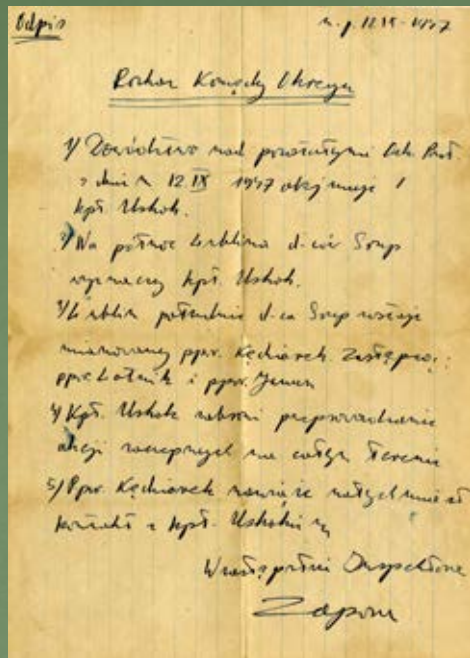 Odpis m. p. 12.IX. 1947
Rozkaz Komendy Okręgu
1/ Dowództwo nad pozostałymi Odz. Part.
z dniem 12 IX 1947 obejmuje
kpt. Uskok.
2/ Na północ Lublina d-ców Grup
wyznaczy kpt. Uskok.
3/ Lublin południe d-cą Grup zostaje
mianowany ppor. Kędziorek Zastępcą:
ppor. Lotnik i ppor. Jawor
4/ Kpt. Uskok zabroni przeprowadzanie
akcji zaczepnych na całym terenie
5/ Ppor. Kędziorek nawiąże natychmiast
kontakt z kpt. Uskokiem
W zastępstwie Inspektora
Zapora